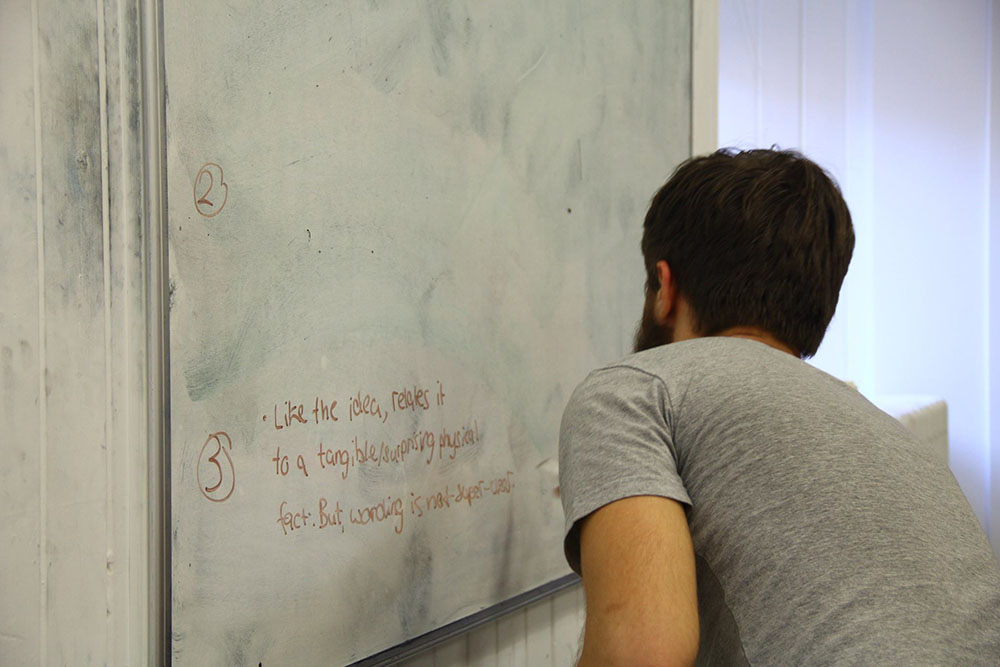 2
· Like the idea, relates it
3 to a tangible/surprising physical
fact. But, wording is not-super-clear.